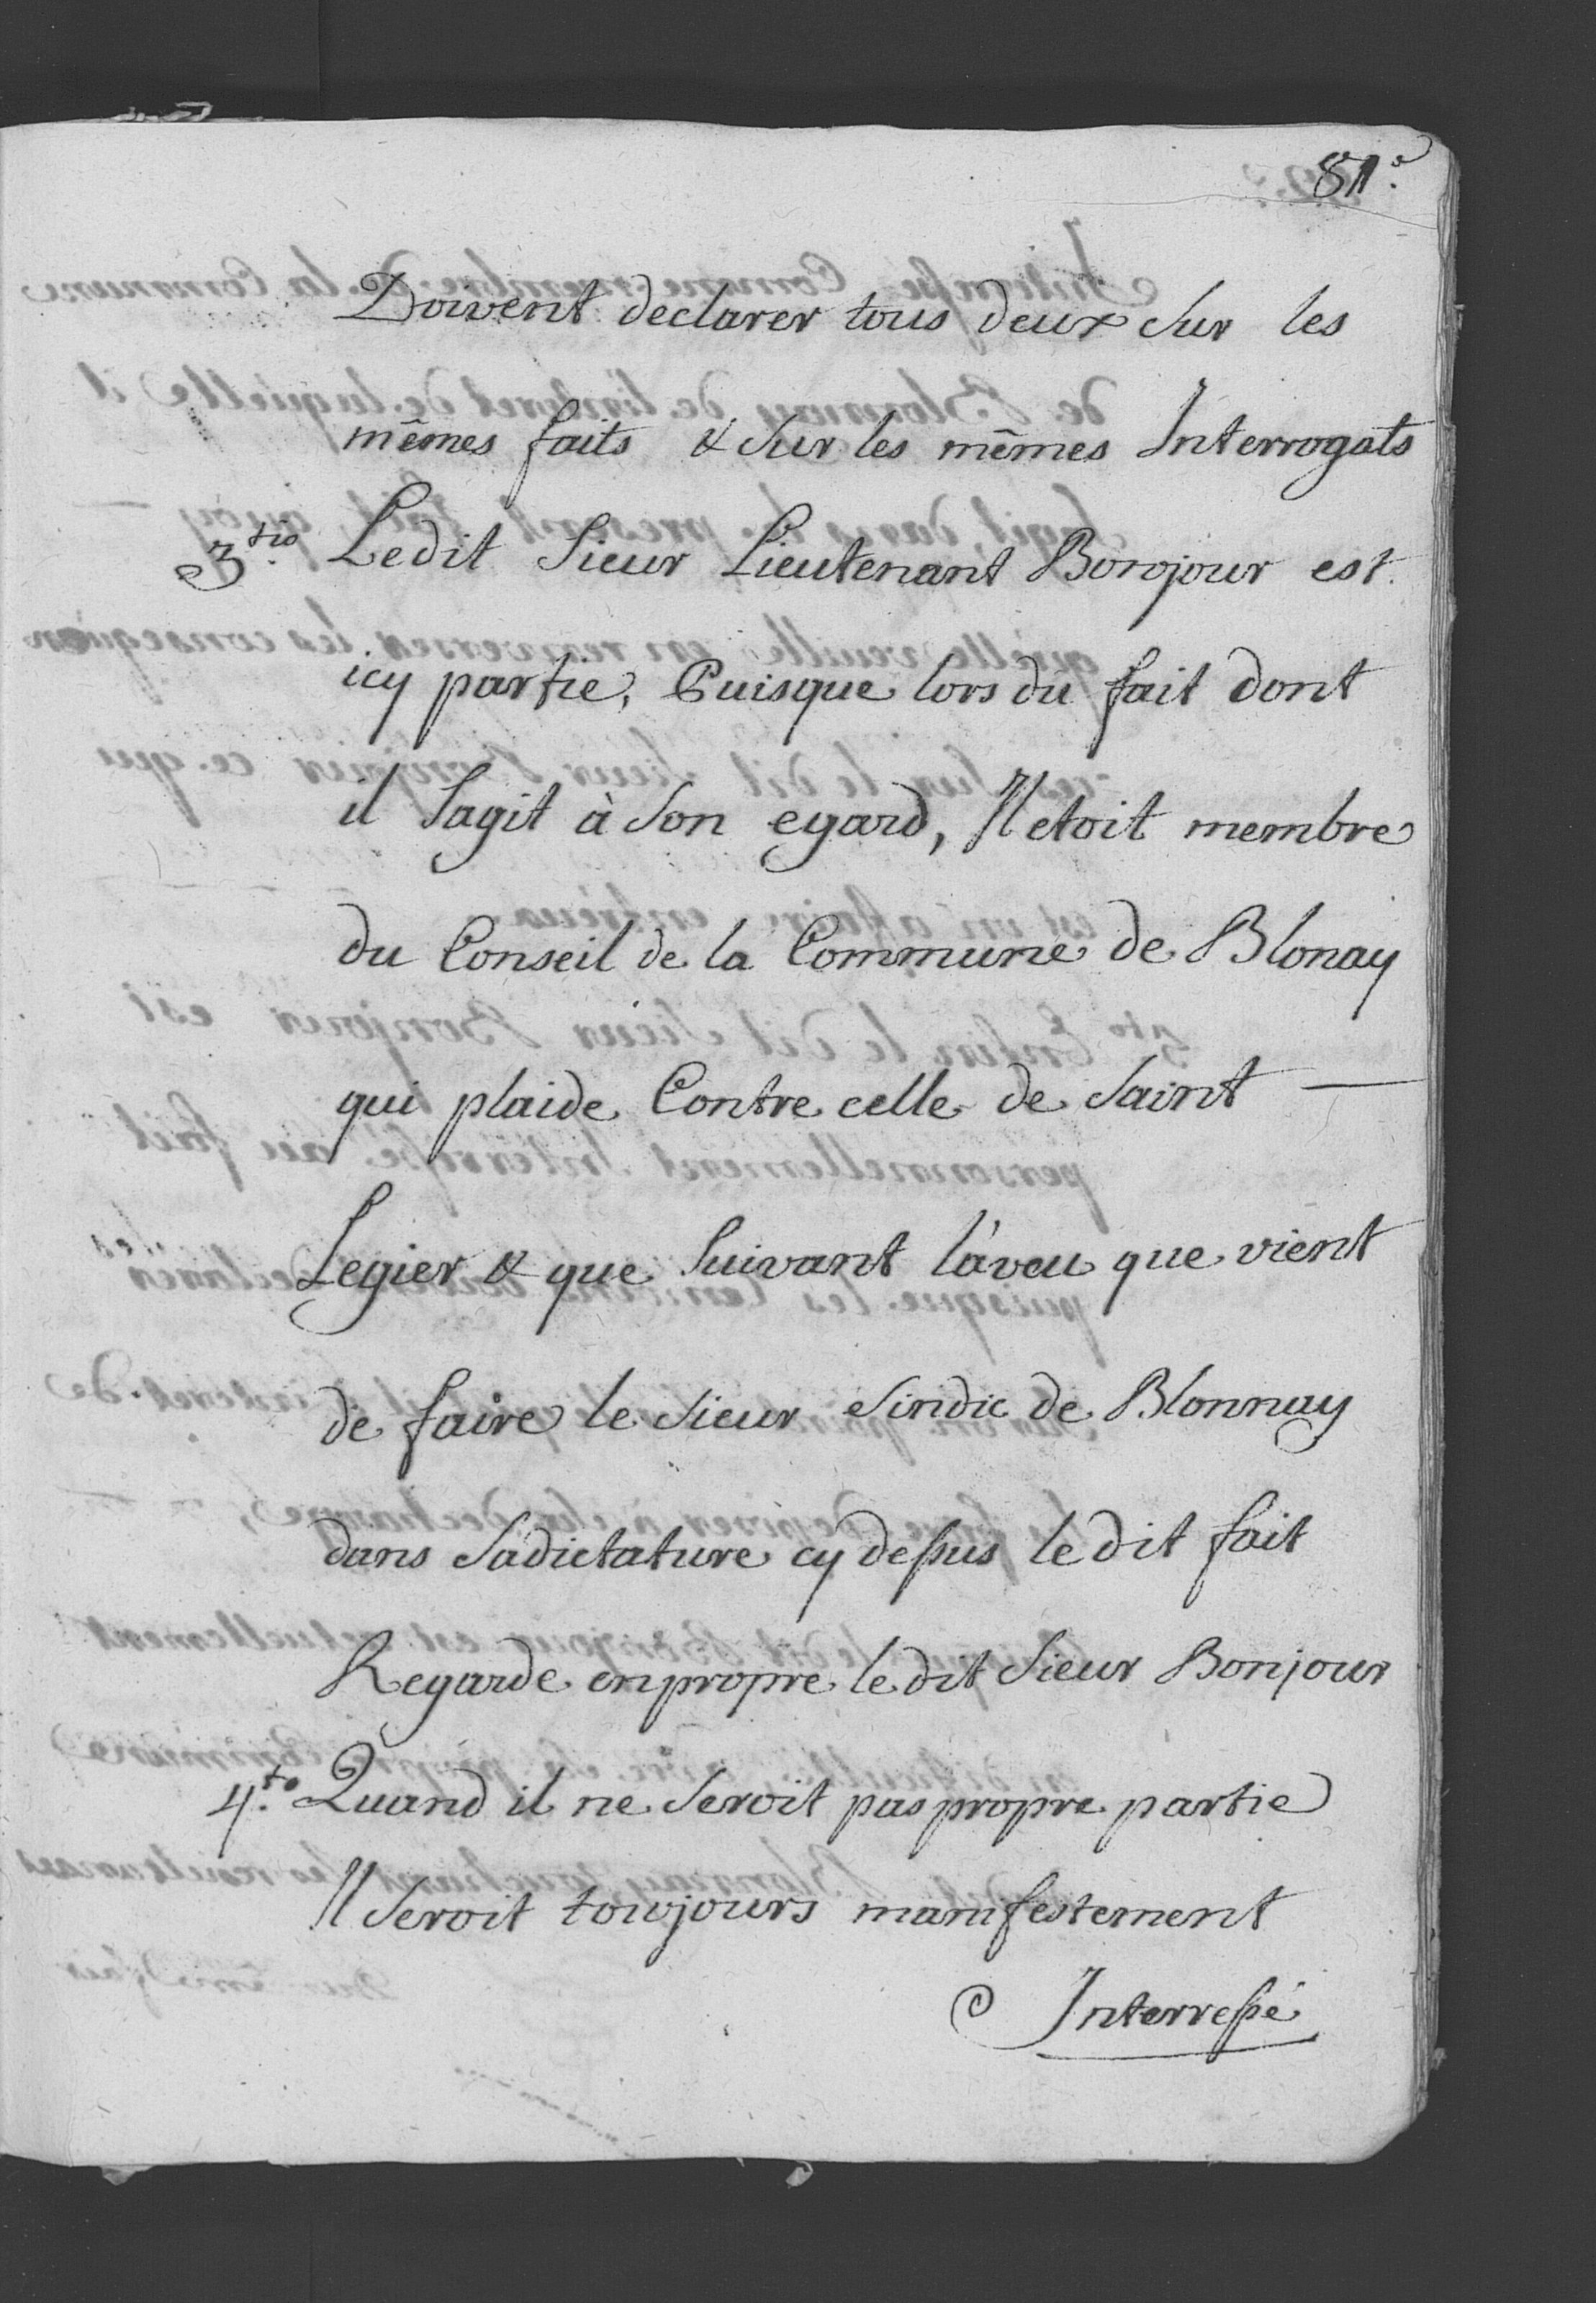 81.e
Doivent declarer tous deux Sur les
mêmes faits & Sur les mêmes Interrogats
3.tio Ledit Sieur Lieutenant Bonojour est
icy partie, Puisque lors du fait dont
il Sagit à Son egard, Il etoit membre
du Conseil de la Commune de Blonay
qui plaide Contre celle de Saint —
Legier & que Suivant l'aveu que vient
de faire le Sieur Sindic de Blonnay
dans Sadictature cy dessus le dit fait
Regarde en propre le dit Sieur Bonjour
4.to Quand il ne Seroit pas propre partie
Il Seroit toujours manifestement
Interressé